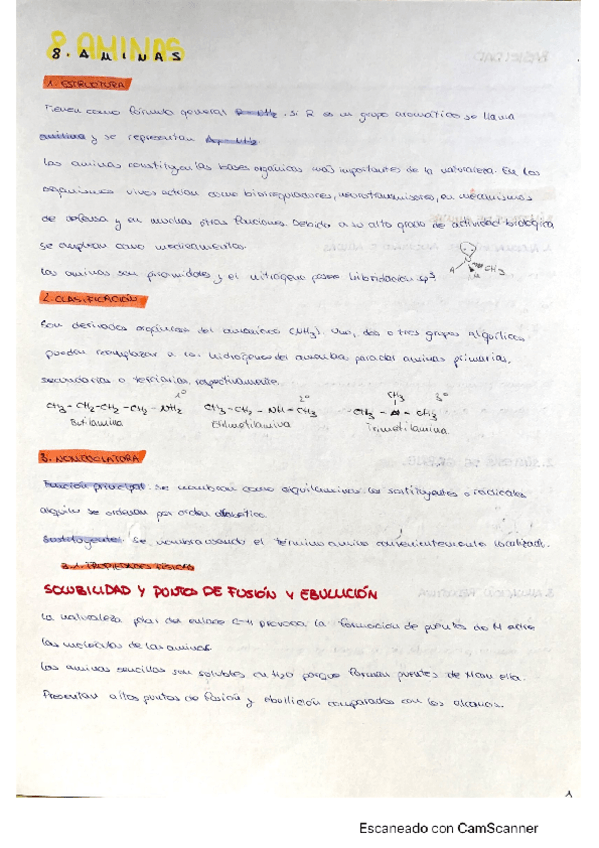 8. AMINAS
1. ESTRUCTURA
Tienen como fórmula general R-NH2. Si R es un grupo aromático se llama
anilina y se representan Ar-NH2
Las aminas constituyen las bases orgánicas más importantes de la naturaleza. En los
organismos vivos actúan como biorreguladores, neurotransmisores, en mecanismos
de defensa y en muchas otras funciones. Debido a su alto grado de actividad biológica
se emplean como medicamentos.
Las aminas son piramidales y el nitrógeno posee hibridación sp3
A CH3
2. CLASIFICACIÓN
Son derivados orgánicos del amoniaco (NH3). Uno, dos o tres grupos alquílicos
pueden reemplazar a los hidrógenos del amoniaco para dar aminas primarias,
secundarias o terciarias, respectivamente.
1º 2º CH3 3º
CH3-CH2-CH2-CH2-NH2 CH3-CH2-NH-CH3 CH3-N-CH3
Butilamina Etilmetilamina Trimetilamina
3. NOMENCLATURA
Función principal: se nombran como alquilaminas. Los sustituyentes o radicales
alquilo se ordenan por orden alfabético.
Sustituyentes: se nombra usando el término amino convenientemente localizado.
3.1. PROPIEDADES FÍSICAS
SOLUBILIDAD Y PUNTOS DE FUSIÓN Y EBULLICIÓN
La naturaleza polar del enlace provoca la formación de puentes de H entre
las moléculas de las aminas.
Las aminas sencillas son solubles en H2O porque forman puentes de H con ella.
Presentan altos puntos de fusión y ebullición comparados con los alcanos.
1
Escaneado con CamScanner